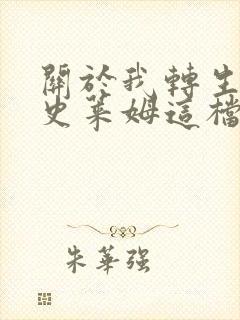 關於我轉生
史萊姆這檔
朱華強